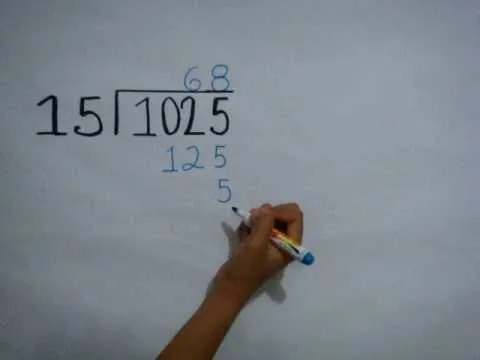 68
15 1025
125
5